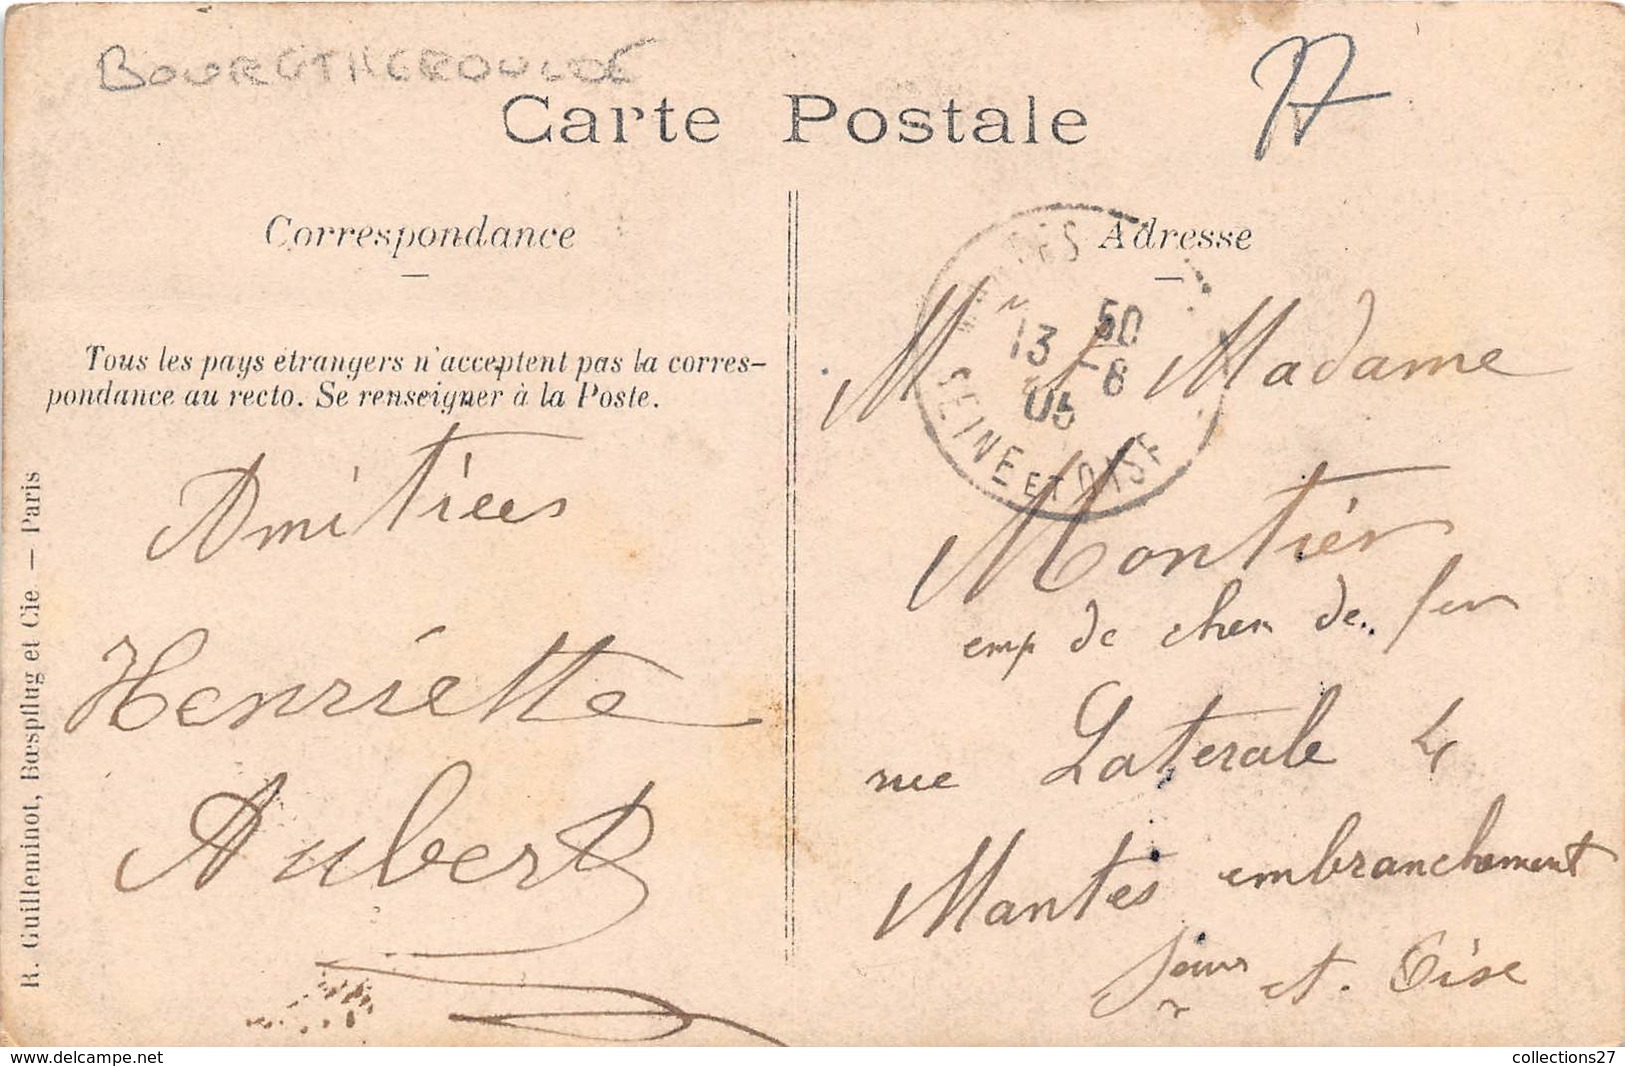 BOURGTHEROULDE
Carte Postale
Correspondance
Tous les pays étrangers n'acceptent pas la corres-
pondance au recto. Se renseigner à la Poste.
Amitiées
Henriette
Aubert
R. Guilleminot, Bœspflug et Cie — Paris
Adresse
13 50
8
05
SEINE ET OISE
M Madame
Montier
emp de chem de fer
rue Laterale 4
Mantes embranchement
et. Oise
collections27